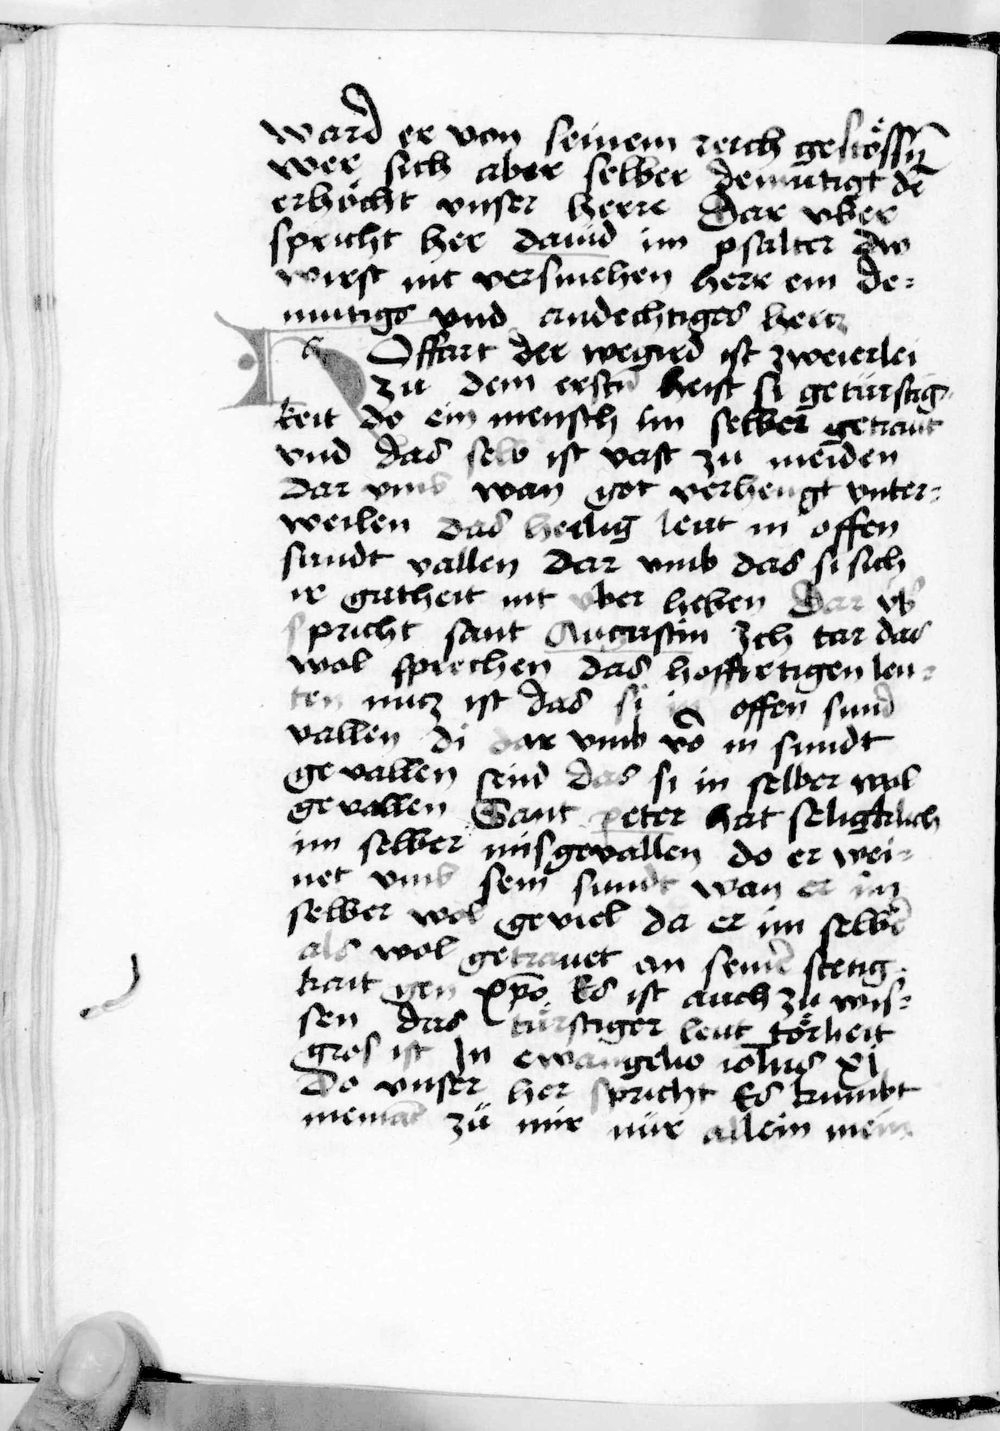 ward er von seinem reich gestössn̄
wer sich aber selber demütigt dē
erhöcht vnser herre Dar vber
spricht her dauid im psalter dw
wirst nit versmehen herr ein de=
mutigs vnd andechtiges hercz
Hoffart der wegird ist zweierlei
zu dem erstn̄ heist si getürstig=
keit do ein mensch im selber getraut
vnd das selb ist vast zu meiden
dar vmb wan got verhengt vnter=
weilen das heilig leut in offen
sundt vallen dar vmb das si sich
ir gutheit nit vber heben Dar vb̄
spricht sant Augustin Ich tar das
wol sprechen das hoffertigen leu=
ten nucz ist das si in offen sund
vallen di dar vmb vō in sundt
gevallen seind das si in selber wol
gevallen Sant peter hat seligklich
im selber misgevallen do er wei=
net vmb sein sundt wan er im
selber wol geviel da er im selbē
als wol getrauet an seinē stetig=
kait gen xp̄o Es ist auch zu wis=
sen das türstiger leut törheit
gros ist In ewangelio ioh̄is xj
Do vnser her spricht Es kumbt
niemāt zü mir nür allein mein